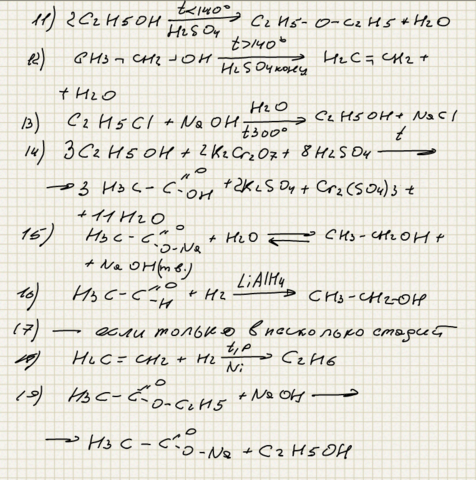 11) 2C2H5OH t<140° H2SO4 → C2H5-O-C2H5 + H2O
12) CH3-CH2-OH t>140° H2SO4 конц → H2C=CH2 +
+ H2O
13) C2H5Cl + NaOH H2O t300° → C2H5OH + NaCl
14) 3C2H5OH + 2K2Cr2O7 + 8H2SO4 t →
→ 3 H3C-C=O OH + 2K2SO4 + Cr2(SO4)3 +
+ 11H2O
15) H3C-C=O O-Na + H2O ⇌ CH3-CH2OH +
+ NaOH(тв.)
16) H3C-C=O H + H2 LiAlH4 → CH3-CH2-OH
17) — если только в несколько стадий
18) H2C=CH2 + H2 t,p Ni → C2H6
19) H3C-C=O O-C2H5 + NaOH →
→ H3C-C=O O-Na + C2H5OH